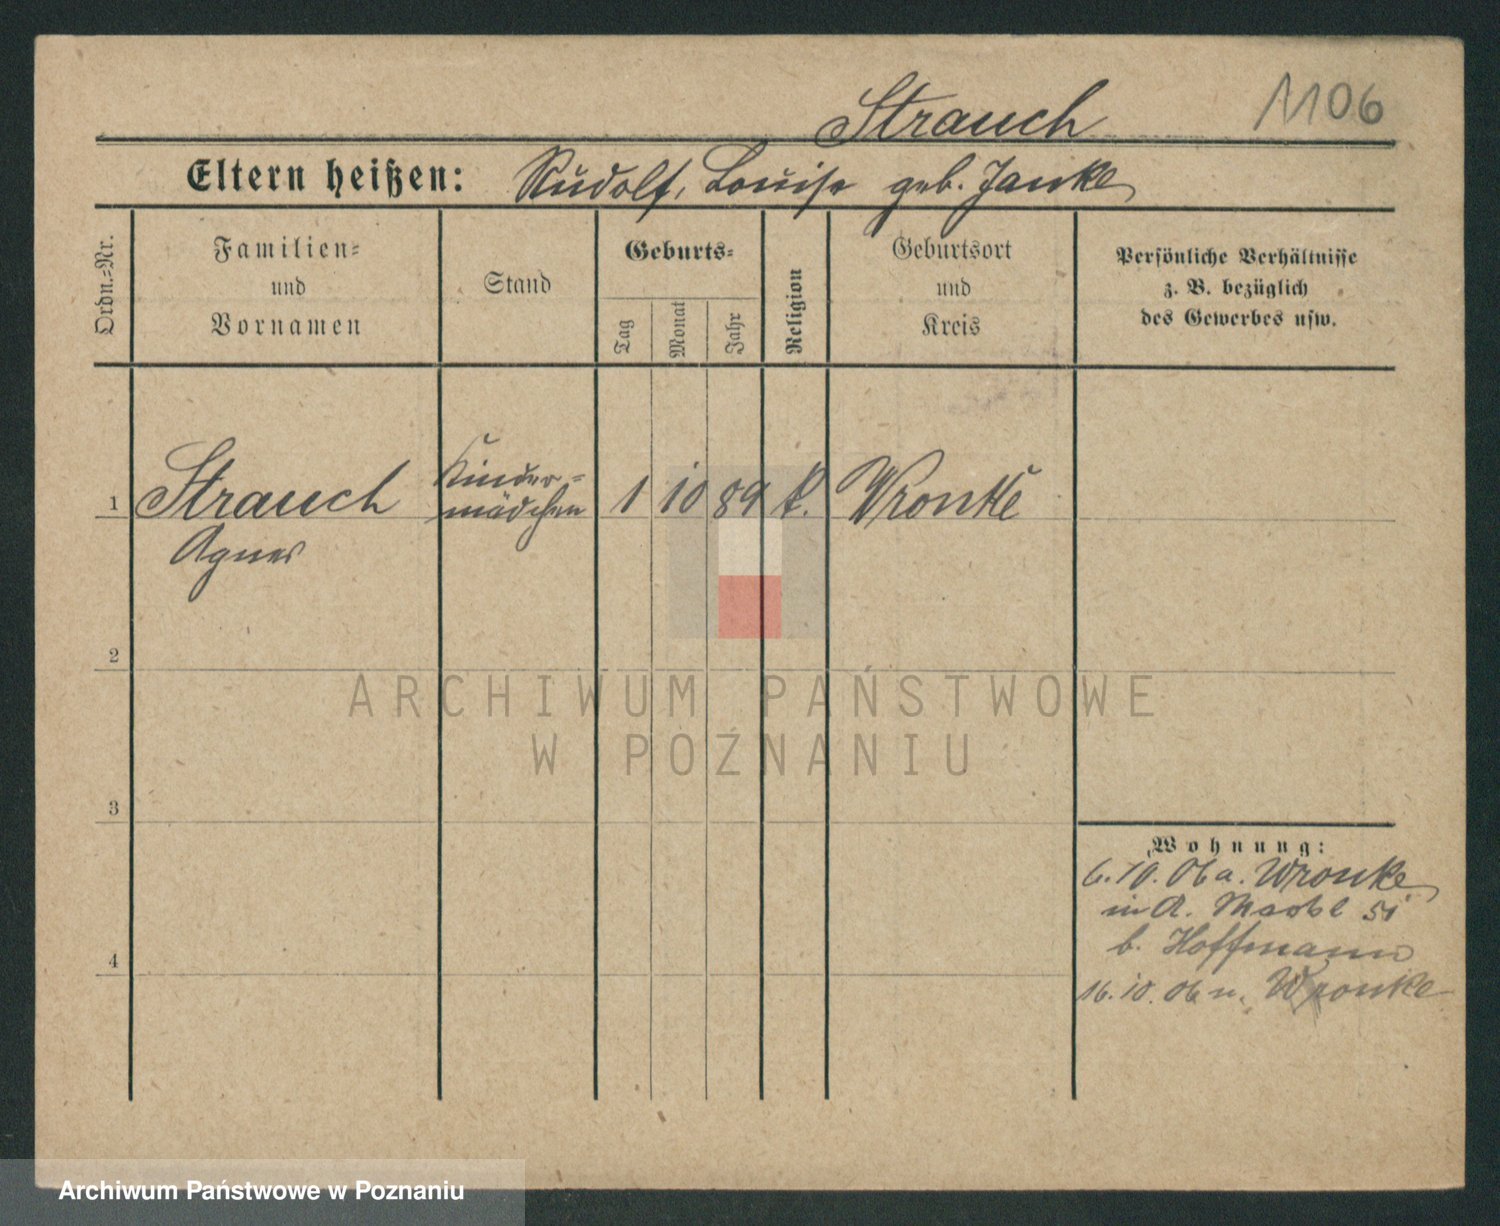 Strauch
1106
Eltern heißen: Rudolf, Louise geb. Janke
Ordn.=Nr.
Familien=
und
Vornamen
Stand
Geburts=
Tag
Monat
Jahr
Religion
Geburtsort
und
Kreis
Persönliche Verhältnisse
z. B. bezüglich
des Gewerbes usw.
1
Strauch
Agnes
Kinder=
mädchen
1
10
89
k.
Wronke
2
3
4
Wohnung:
6.10.06 a. Wronke
in A. 51
b. Hoffmann
16.10.06 n. Wronke
ARCHIWUM PAŃSTWOWE
W POZNANIU
Archiwum Państwowe w Poznaniu